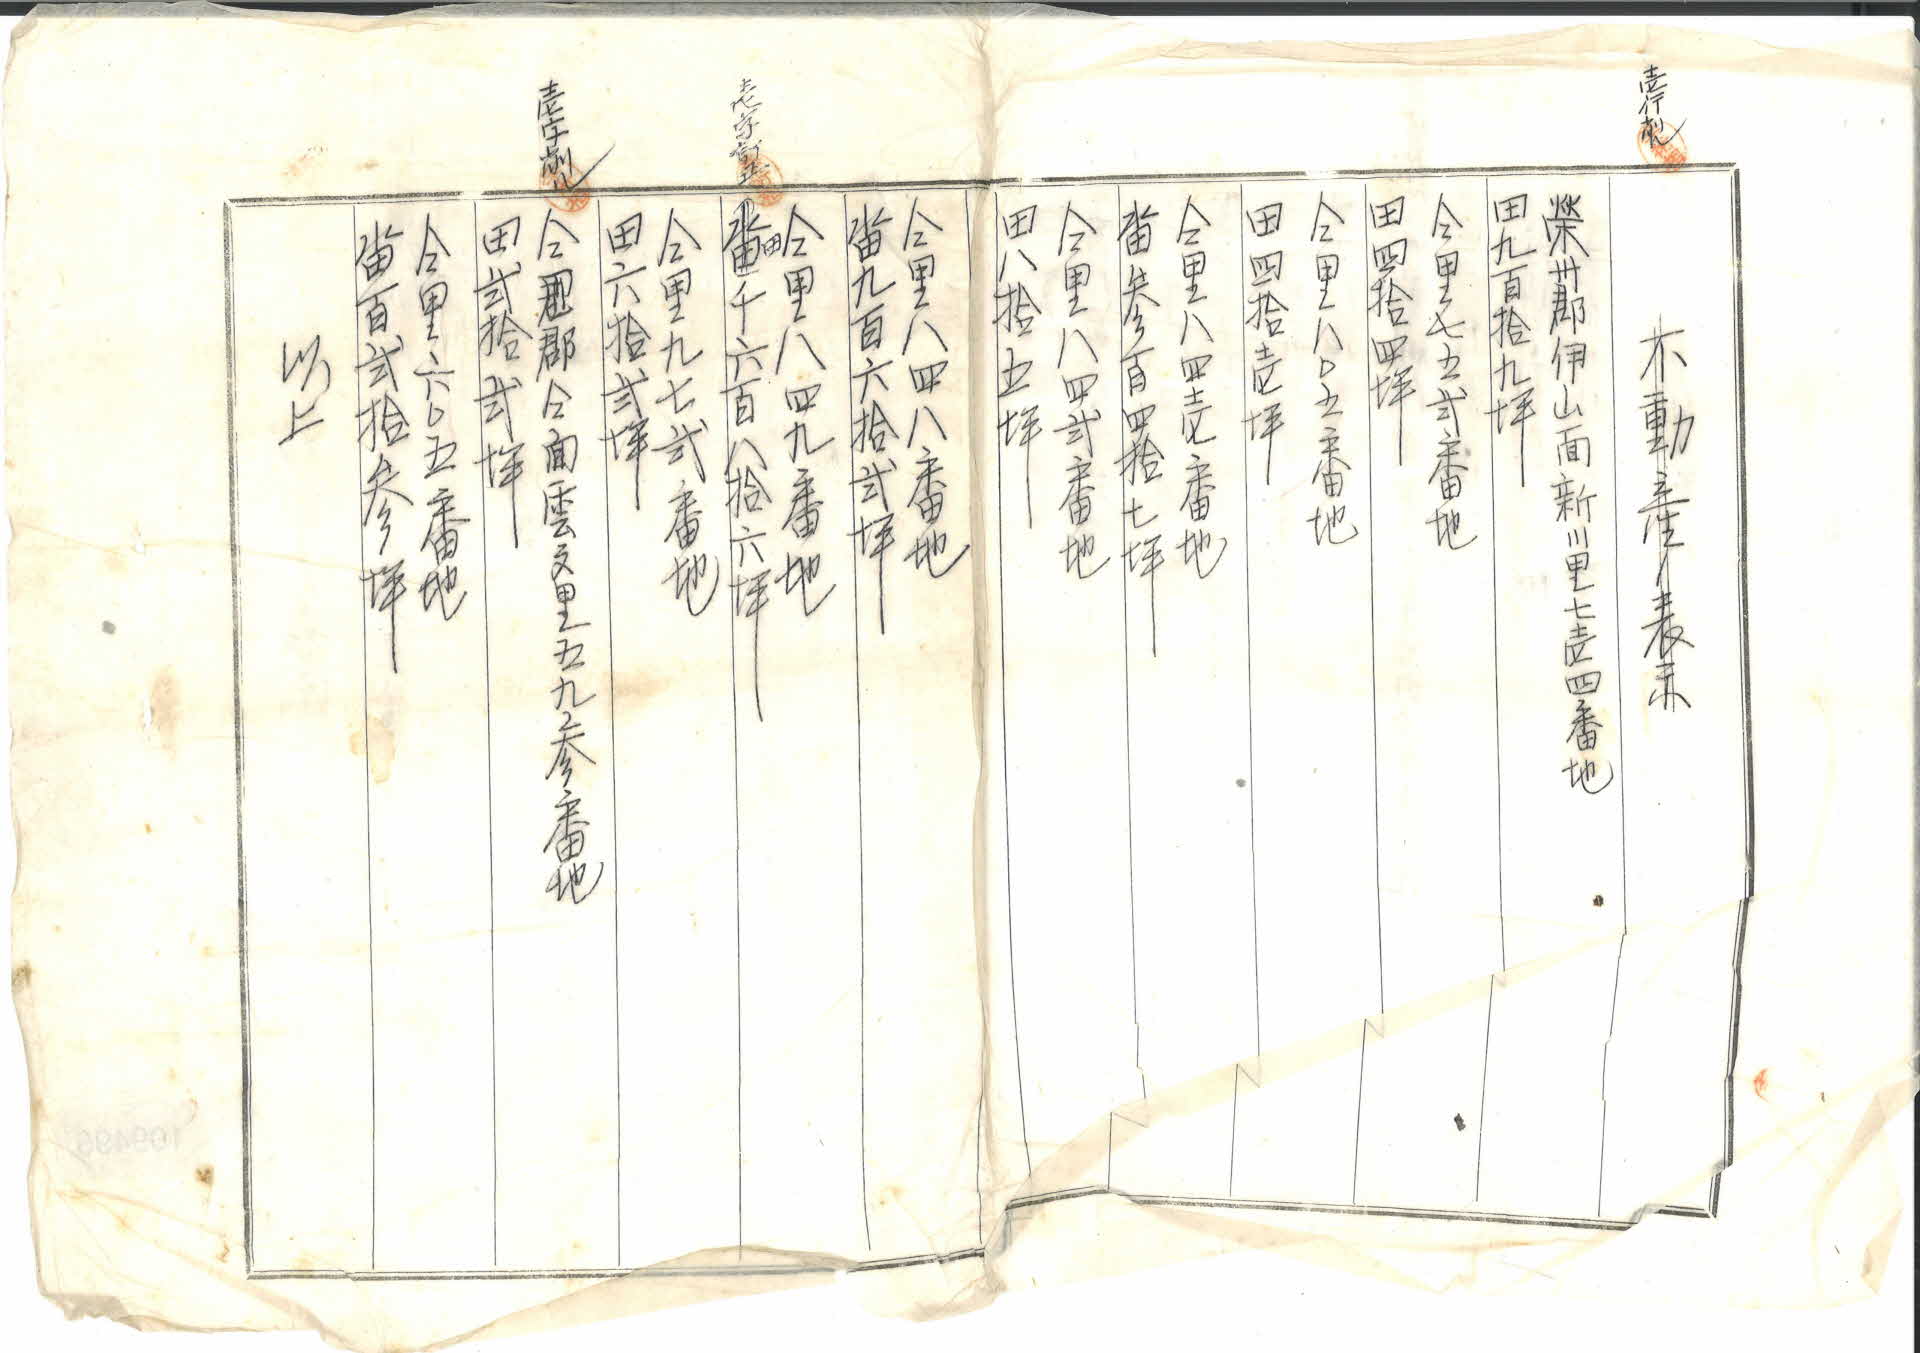 壱行削
不動産ノ表示
榮州郡伊山面新川里七壱四番地
田九百拾九坪
仝里七五弐番地
田四拾四坪
仝里八〇五番地
田四拾壱坪
仝里八四壱番地
畓参百四拾七坪
仝里八四弐番地
田八拾五坪
仝里八四八番地
畓九百六拾弐坪
壱字訂正
仝里八四九番地
田千六百八拾六坪
仝里九七弐番地
田六拾弐坪
壱字削
仝郡仝面雲文里五九参番地
田弐拾弐坪
仝里六〇五番地
畓百弐拾参坪
以上